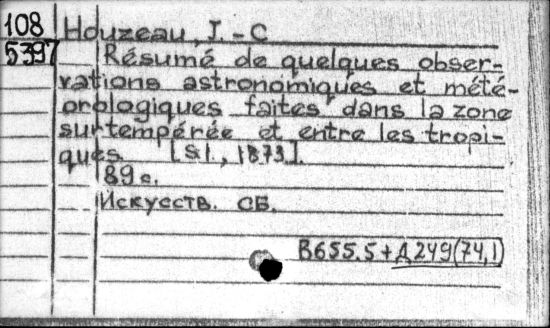 108 Houzeau, J.-C
5397 Résumé de quelques obser-
vations astronomiques et mété-
orologiques faites dans la zone
surtempérée et entre les tropi-
ques. [S.l., 1873].
89 с.
Искусств. СБ.
B655.5+Д249(74,1)